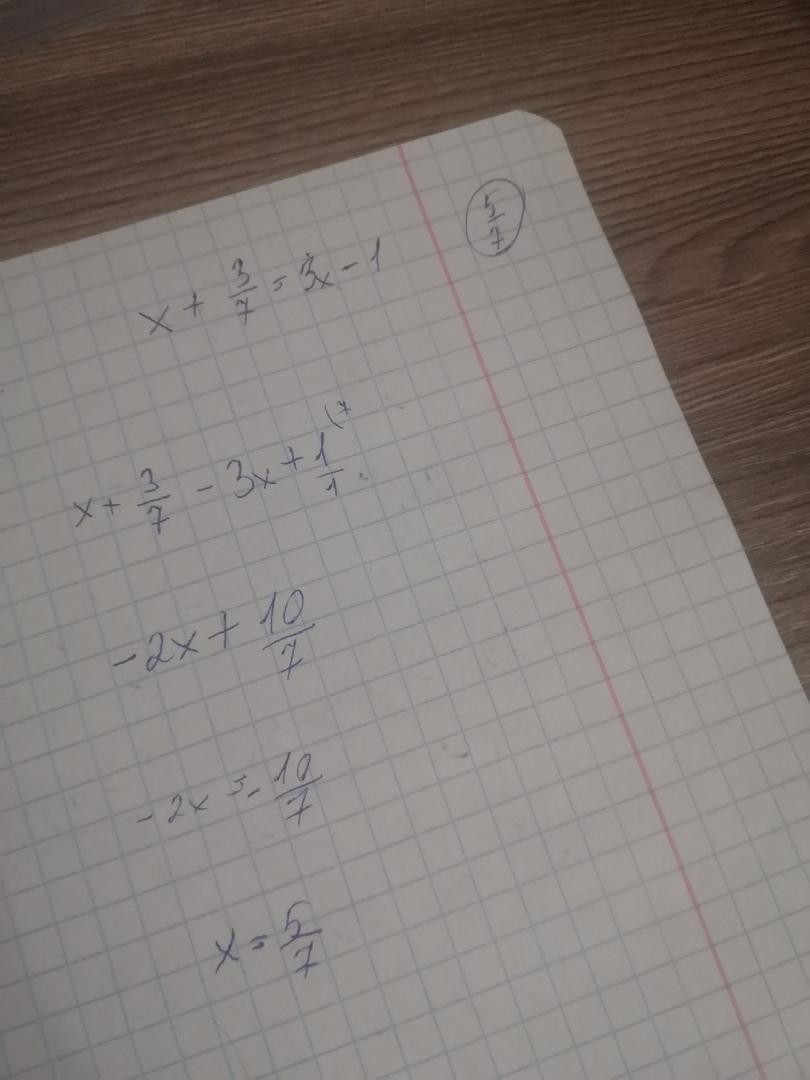 5/7
x + 3/7 = 3x - 1
x + 3/7 - 3x + 1/1 (7
-2x + 10/7
-2x = -10/7
x = 5/7